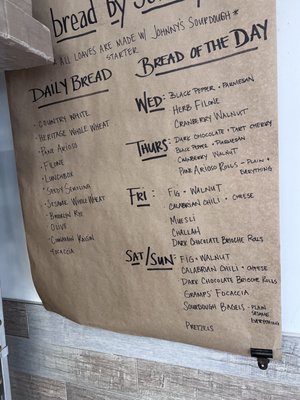 bread by Johnny
* ALL LOAVES ARE MADE W/ JOHNNY'S SOURDOUGH *
STARTER
DAILY BREAD
· COUNTRY WHITE
· HERITAGE WHOLE WHEAT
· PANE ARIOSO
· FILONE
· LUNCHBOX
· SEEDY SENSING
· SESAME WHOLE WHEAT
· BROOKLYN RYE
· OLIVE
· CINNAMON RAISIN
· FOCACCIA
BREAD OF THE DAY
WED: BLACK PEPPER + PARMESAN
HERB FILONE
CRANBERRY WALNUT
THURS: DARK CHOCOLATE + TART CHERRY
BLACK PEPPER + PARMESAN
CRANBERRY WALNUT
PANE ARIOSO ROLLS - PLAIN +
EVERYTHING
FRI: FIG + WALNUT
CALABRIAN CHILI + CHEESE
MUESLI
CHALLAH
DARK CHOCOLATE BRIOCHE ROLLS
SAT/SUN: FIG + WALNUT
CALABRIAN CHILI + CHEESE
DARK CHOCOLATE BRIOCHE ROLLS
GRAMPS' FOCACCIA
SOURDOUGH BAGELS - PLAIN
SESAME
EVERYTHING
PRETZELS